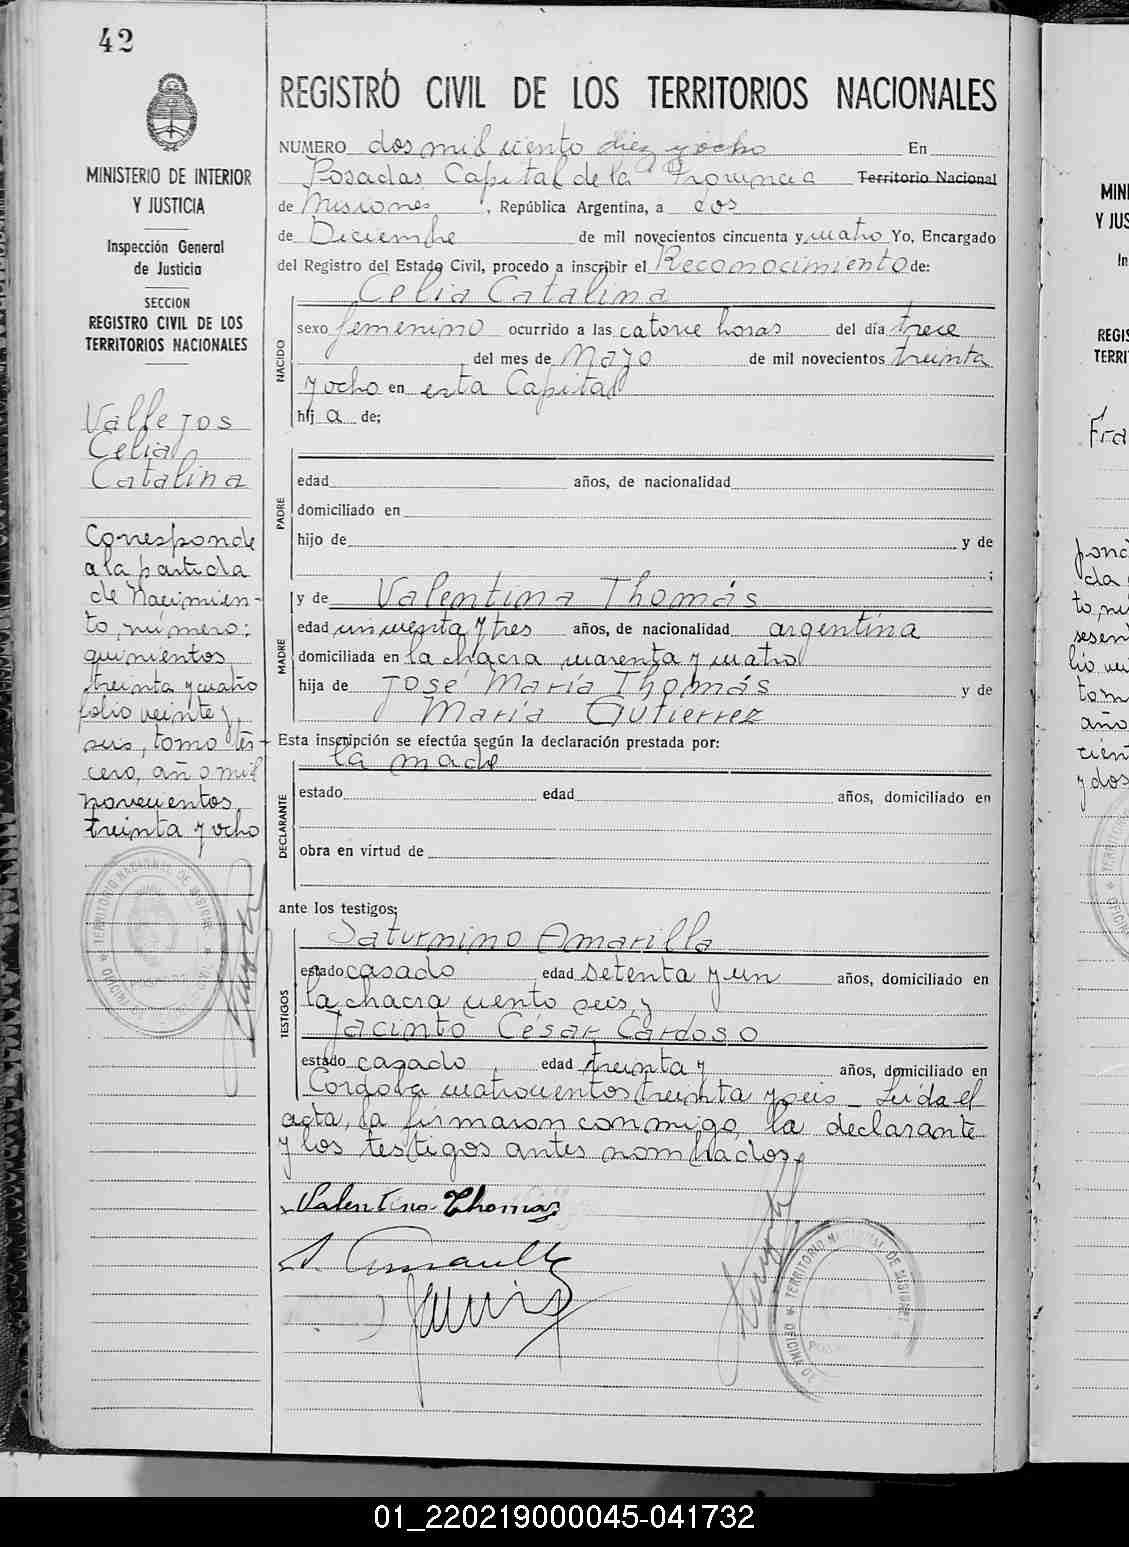 42
MINISTERIO DE INTERIOR
Y JUSTICIA
Inspección General
de Justicia
SECCION
REGISTRO CIVIL DE LOS
TERRITORIOS NACIONALES
Vallejos
Celia
Catalina
Corresponde
a la partida
de Nacimien-
to, número:
quinientos
treinta y cuatro
folio veinte y
seis, tomo ter-
cero, año mil
novecientos
treinta y ocho
REGISTRO CIVIL DE LOS TERRITORIOS NACIONALES
NUMERO dos mil ciento diez y ocho En
Posadas Capital de la Provincia Territorio Nacional
de Misiones, República Argentina, a dos
de Diciembre de mil novecientos cincuenta y cuatro Yo, Encargado
del Registro del Estado Civil, procedo a inscribir el Reconocimiento de:
Celia Catalina
NACIDO
sexo femenino ocurrido a las catorce horas del día trece
del mes de Mayo de mil novecientos treinta
y ocho en esta Capital
hij a de;
PADRE
edad años, de nacionalidad
domiciliado en
hijo de y de
;
MADRE
y de Valentina Thomás
edad cincuenta y tres años, de nacionalidad argentina
domiciliada en la chacra cuarenta y cuatro
hija de José María Thomás y de
María Gutierrez
Esta inscripción se efectúa según la declaración prestada por:
la made
DECLARANTE
estado edad años, domiciliado en
obra en virtud de
ante los testigos;
Saturnino Amarilla
TESTIGOS
estado casado edad setenta y un años, domiciliado en
la chacra ciento seis y
Jacinto César Cardoso
estado casado edad treinta y años, domiciliado en
Córdova cuatrocientos treinta y seis _ Leída el
acta, la firmaron conmigo, la declarante
y los testigos antes nombrados.
Valentina Thomas
MINI
Y JUS
REGIS
TERRI
Fra
01_220219000045-041732